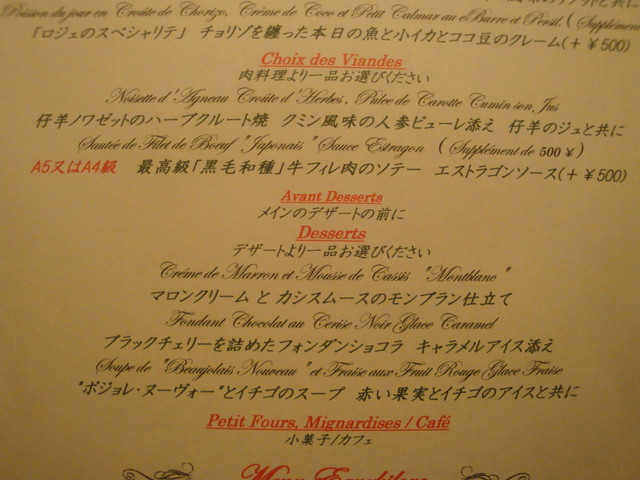 Poisson du jour en Croûte de Chorizo, Crème de Coco et Petit Calmar au Burre et Persil. (Supplément
「ロジェのスペシャリテ」 チョリソを纏った本日の魚と小イカとココ豆のクレーム(+￥500)
Choix des Viandes
肉料理より一品お選びください
Noisette d'Agneau Croûte d'Herbes, Pulee de Carotte Cumin son Jus
仔羊ノワゼットのハーブクルート焼 クミン風味の人参ピューレ添え 仔羊のジュと共に
Sautée de Filet de Boeuf "Japonais" Sauce Estragon (Supplément de 500￥)
A5又はA4級 最高級「黒毛和種」牛フィレ肉のソテー エストラゴンソース(+￥500)
Avant Desserts
メインのデザートの前に
Desserts
デザートより一品お選びください
Crème de Marron et Mousse de Cassis "Montblanc"
マロンクリーム と カシスムースのモンブラン仕立て
Fondant Chocolat au Cerise Noir Glace Caramel
ブラックチェリーを詰めたフォンダンショコラ キャラメルアイス添え
Soupe de "Beaujolais Nouveau" et Fraise aux Fruit Rouge Glace Fraise
"ボジョレ・ヌーヴォー"とイチゴのスープ 赤い果実とイチゴのアイスと共に
Petit Fours, Mignardises / Café
小菓子/カフェ
Menu